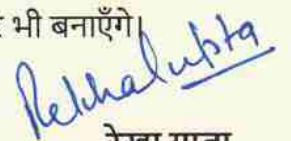 भी बनाएँगे।
Rekha Gupta